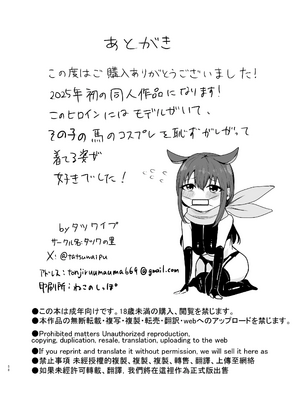 あとがき
この度はご購入ありがとうございました!
2025年初の同人作品になります!
このヒロインにはモデルがいて、
その子の馬のコスプレを恥ずかしがって
着てる姿が
好きでした!
by タツワイプ
サークル名:タツワの里
X: @tatsuwaipu
アドレス: tonjiruumauma669@gmail.com
印刷所: ねこのしっぽ
●この本は成年向けです。18歳未満の購入、閲覧を禁じます。
●本作品の無断転載・複写・複製・転売・翻訳・webへのアップロードを禁じます。
●Prohibited matters Unauthorized reproduction,
copying, duplication, resale, translation, uploading to the web
●If you reprint and translate it without permission, we will sell it here as
●禁止事項 未經授權的複製、複製、複製、轉售、翻譯、上傳至網絡
●如果未經許可轉載、翻譯, 我們將在這裡作為正式版出售